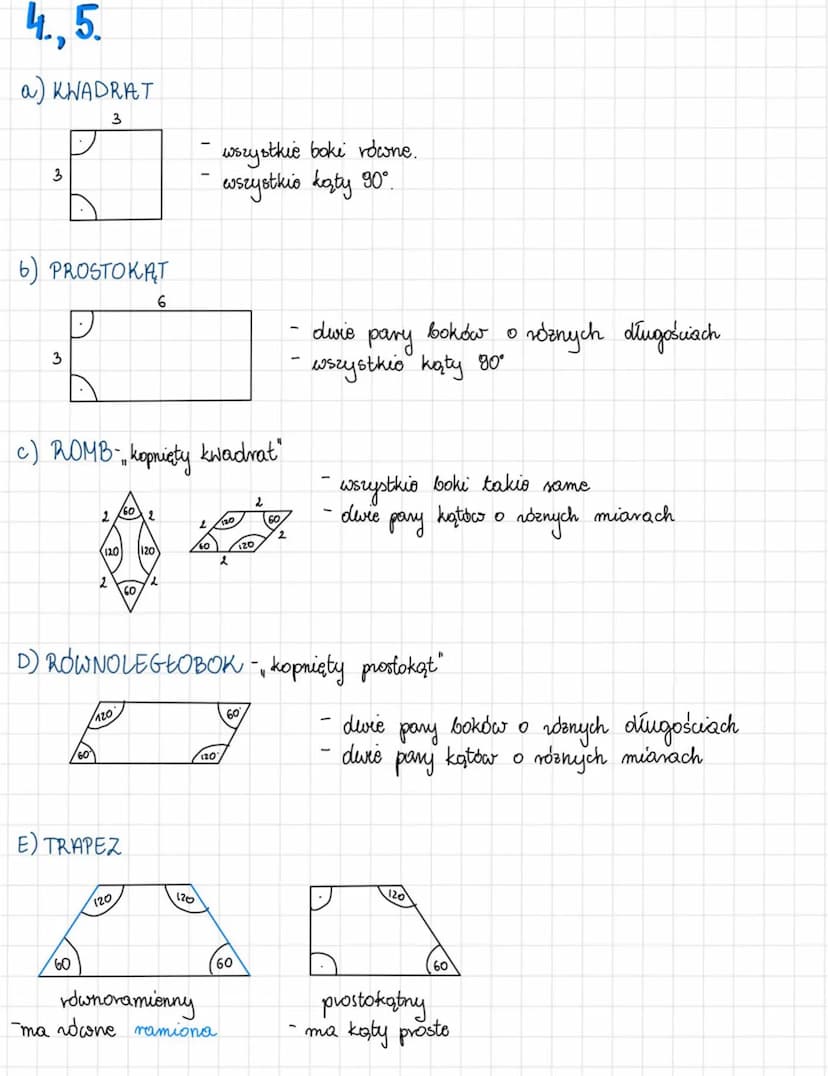 4., 5.
a) KWADRAT
3
3
- wszystkie boki równe.
- wszystkie kąty 90°.
b) PROSTOKĄT
6
3
- dwie pary boków o różnych długościach
- wszystkie kąty 90°
c) ROMB - „kopnięty kwadrat"
- wszystkie boki takie same
- dwie pary kątów o różnych miarach
2 60 2
120 120
2 60 2
2
2 120 60 2
60 120
2
D) RÓWNOLEGŁOBOK - „kopnięty prostokąt"
120° 60°
60° 120°
- dwie pary boków o różnych długościach
- dwie pary kątów o różnych miarach
E) TRAPEZ
120 120
60 60
120
60
równoramienny
- ma równe ramiona
prostokątny
- ma kąty proste